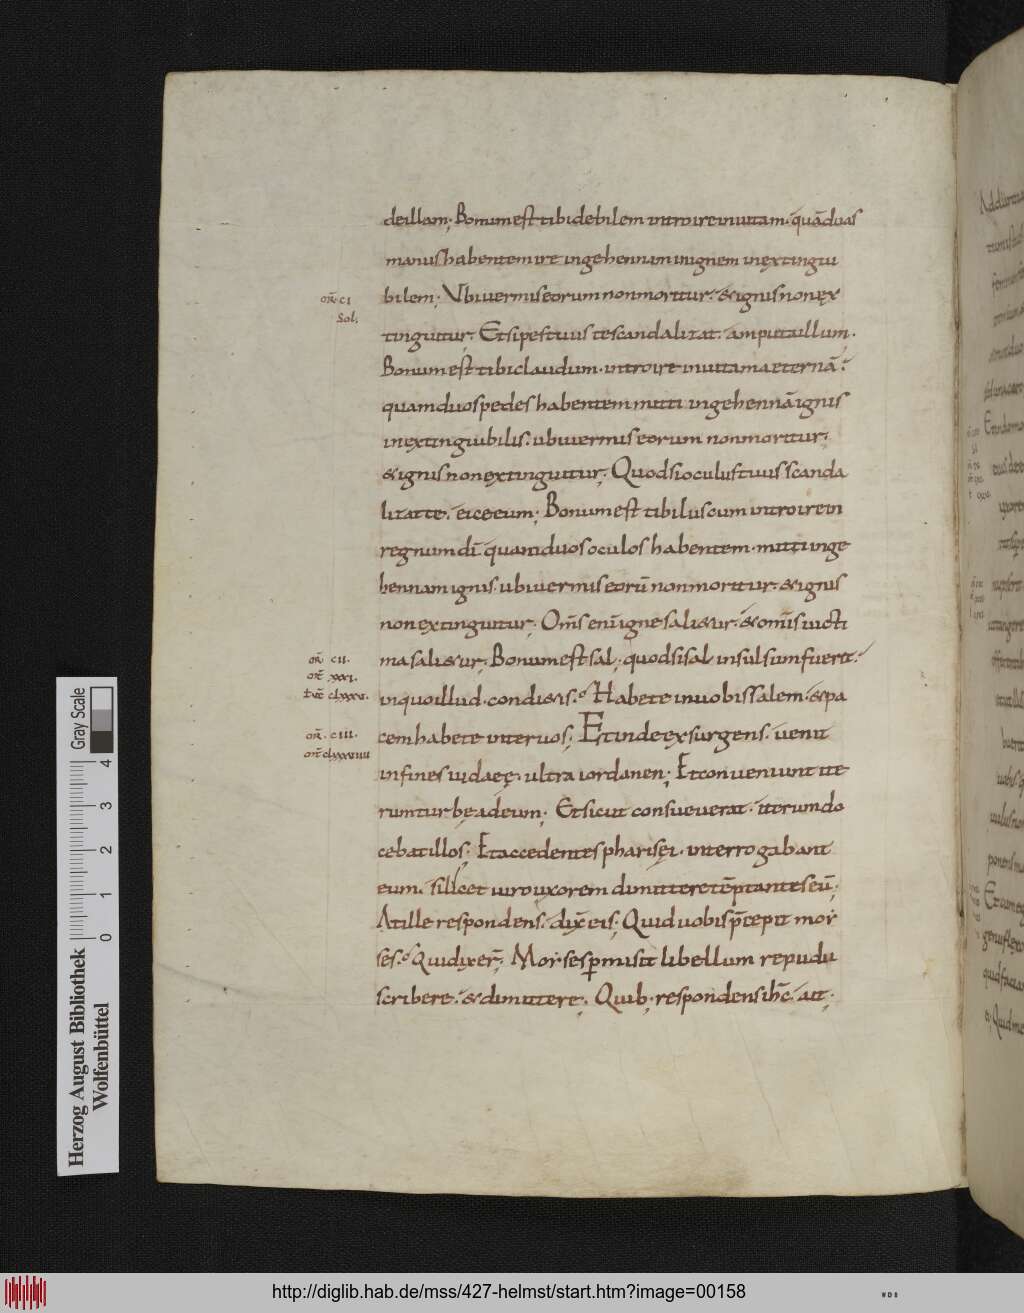 de illam; Bonum est tibi debilem introire in uitam. quā duas
manus habentem ire in gehennam in ignem inextingui
bilem; Vbi uermis eorum non moritur. & ignis non ex
tinguitur; Et si pes tuus te scandalizat. amputa illum.
Bonum est tibi claudum. introire in uitam aeternā.
quam duos pedes habentem mitti in gehennā ignis
inextinguibilis. ubi uermis eorum non moritur;
& ignis non extinguitur; Quod si oculus tuus scanda
lizat te. eice eum; Bonum est tibi luscum introire in
regnum dī quam duos oculos habentem. mitti in ge
hennam ignis. ubi uermis eorū non moritur. & ignis
non extinguitur; Om̄s enī igne sali&ur. & om̄is uicti
ma sali&ur; Bonum est sal; quod si sal insulsum fuerit.
in quo illud. condi&is. Habete in uobis salem. & pa
cem habete inter uos; Et inde exsurgens. uenit
in fines iudaeę. ultra iordanen; Et conueniunt ite
rum turbę ad eum; Et sicut consueuerat. iterum do
cebat illos; Et accedentes pharisęi. interrogabant
eum. si licet uiro uxorem dimittere tēptantes eū;
At ille respondens. dix̄ eis; Quid uobis p̄cepit mor
ses. Qui dixer̄; Morses ꝑmisit libellum repudii
scribere. & dimittere; Quib; respondens ih̄c. ait;
CI
Sol.
CII.
XXXI.
CLXXXV.
CIII.
CLXXXVIIII
Herzog August Bibliothek
Wolfenbüttel
Gray Scale
0 1 2 3 4
http://diglib.hab.de/mss/427-helmst/start.htm?image=00158